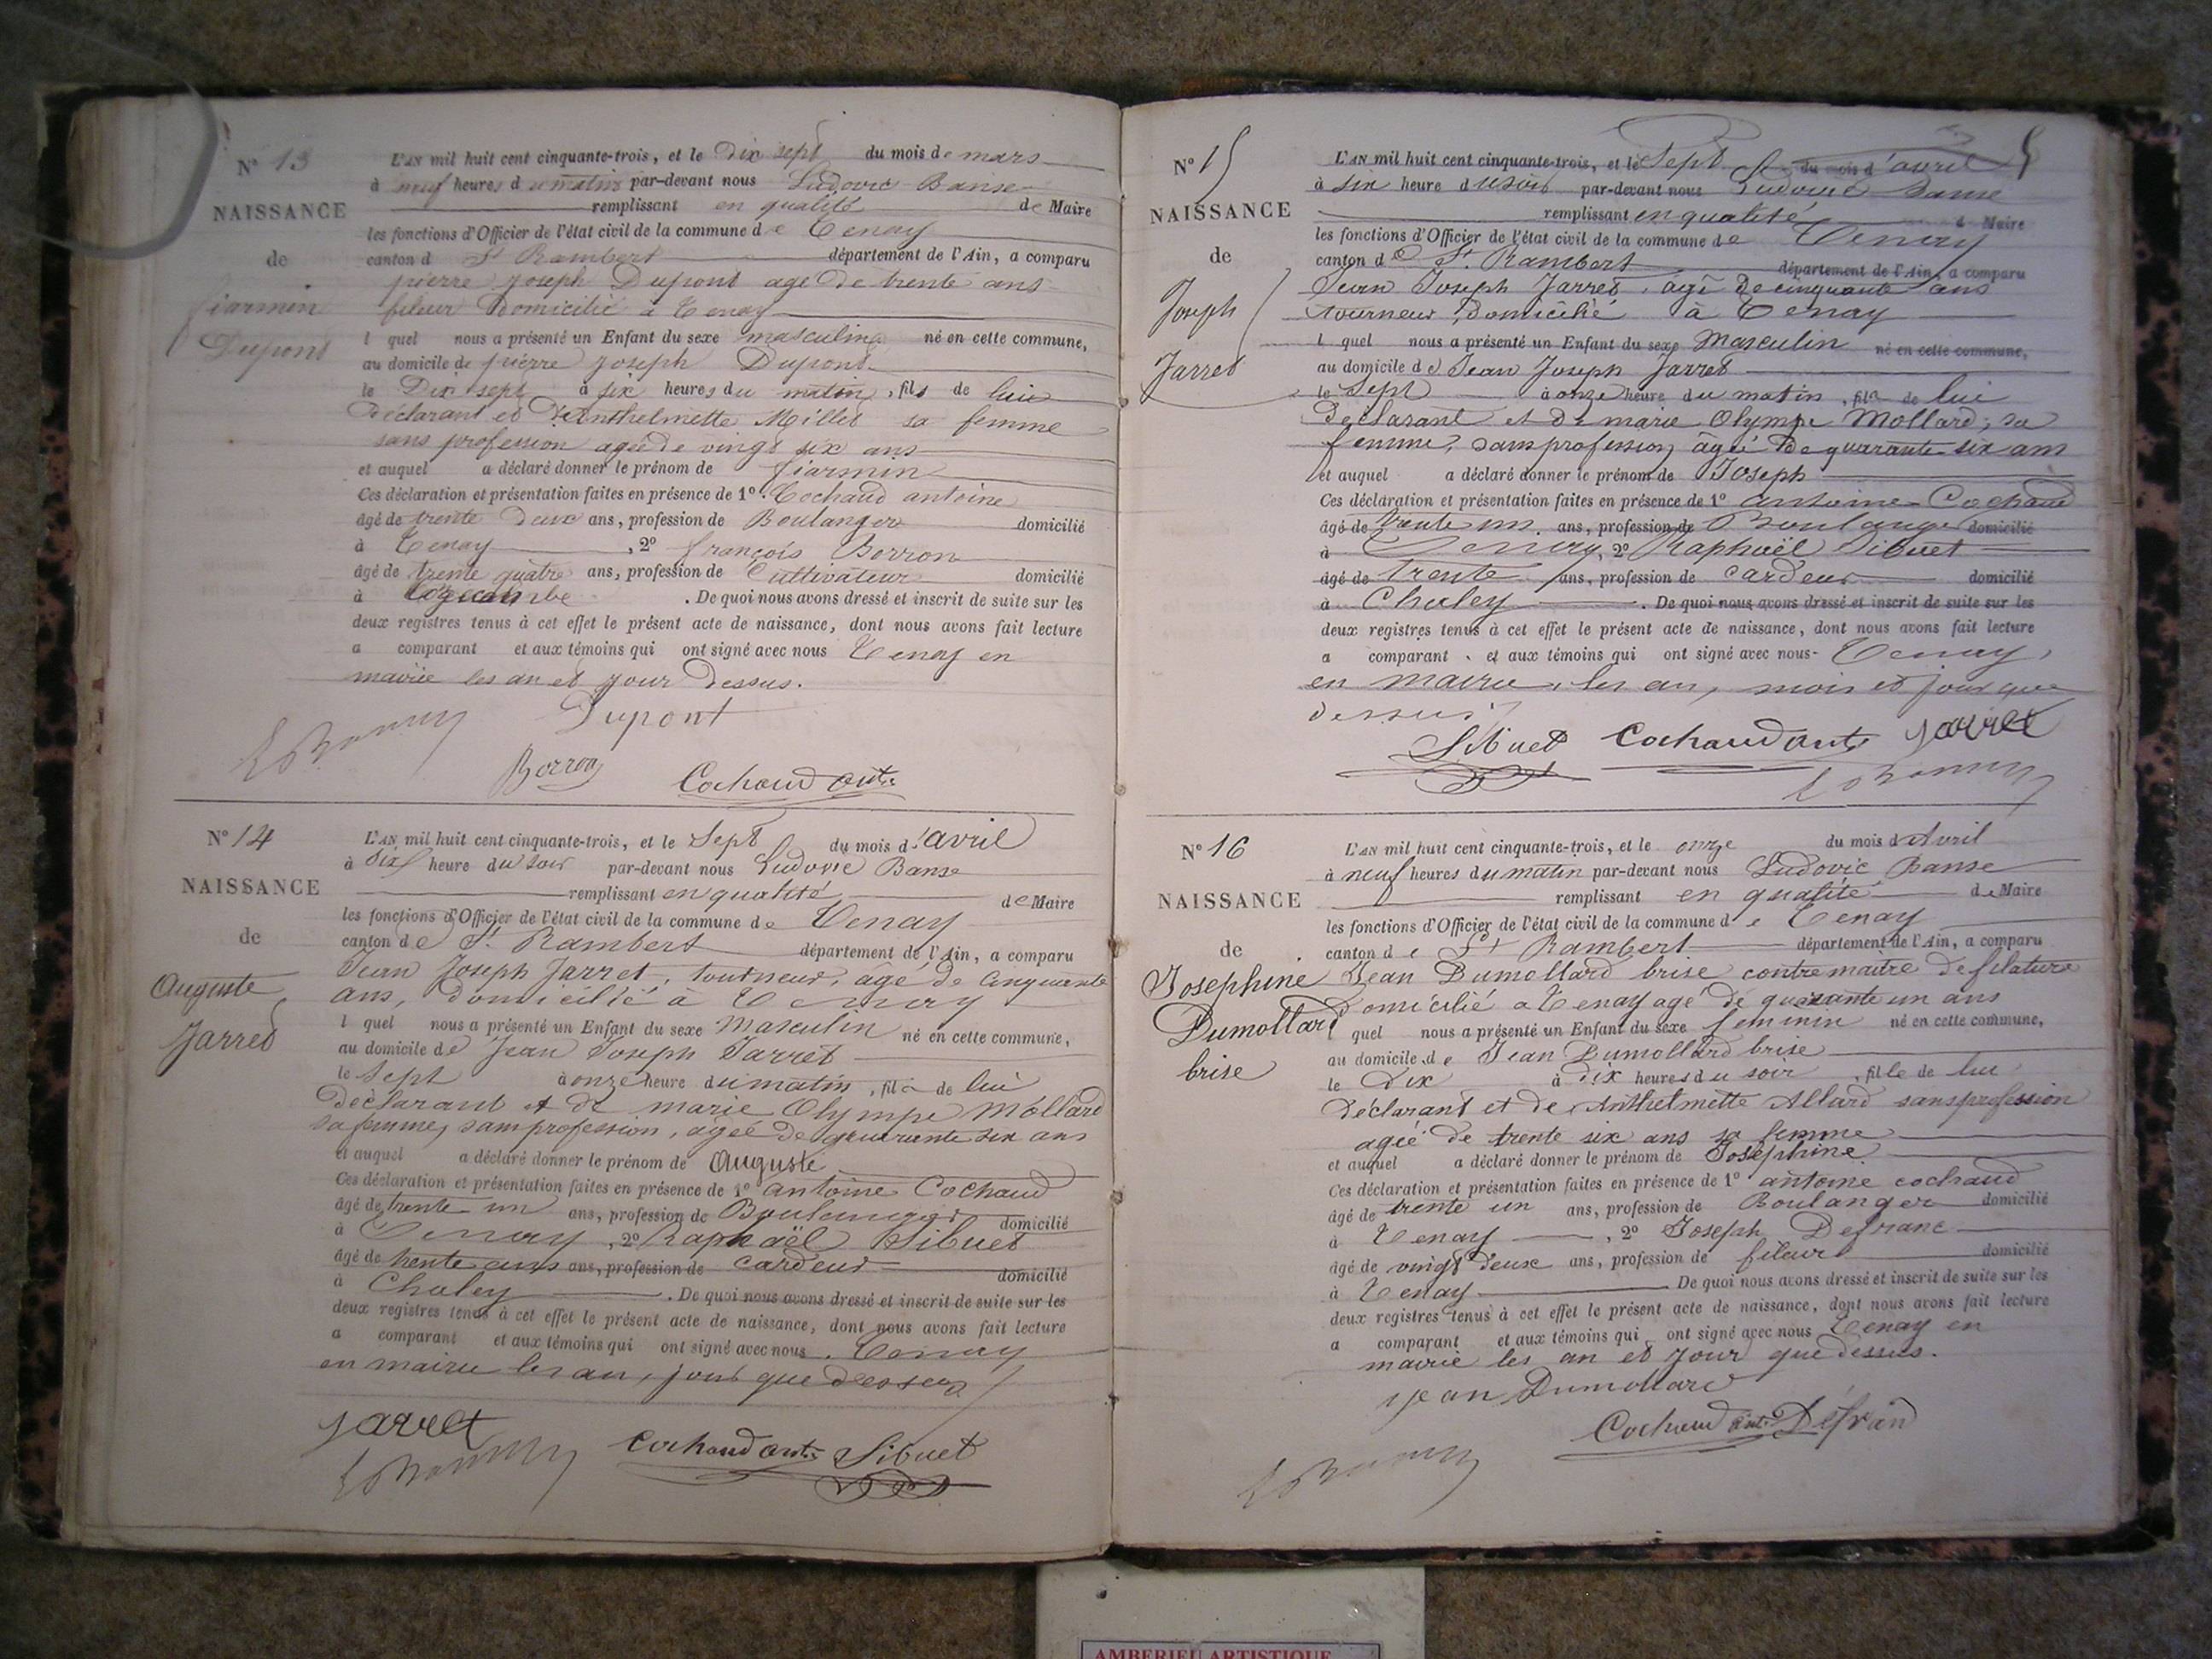 N° 13
NAISSANCE
de
fiarmin
Dupont
L'AN mil huit cent cinquante-trois, et le Dix sept du mois de mars
à neuf heures du matin par-devant nous Ludovic Banse
remplissant en qualité de Maire
les fonctions d'Officier de l'état civil de la commune de Tenay
canton d St Rambert département de l'Ain, a comparu
pierre joseph Dupont agé De trente ans
fileur Domicilié à Tenay
l quel nous a présenté un Enfant du sexe masculin né en cette commune,
au domicile de pierre joseph Dupont
le Dix sept à six heures du matin, fils de lui
Déclarant et D'Anthelmette Millet sa femme
sans profession agée de vingt six ans
et auquel a déclaré donner le prénom de fiarmin
Ces déclaration et présentation faites en présence de 1° Cochaud antoine
âgé de trente Deux ans, profession de Boulanger domicilié
à Tenay, 2° françois Borron
âgé de trente quatre ans, profession de Cultivateur domicilié
à . De quoi nous avons dressé et inscrit de suite sur les
deux registres tenus à cet effet le présent acte de naissance, dont nous avons fait lecture
a comparant et aux témoins qui ont signé avec nous Tenay en
mairie les an et jour Dessus.
Dupont
Borron
Cochaud ant.
N° 14
NAISSANCE
de
Auguste
Jarret
L'AN mil huit cent cinquante-trois, et le Sept du mois d'avril
à six heure du soir par-devant nous Ludovic Banse
remplissant en qualité de Maire
les fonctions d'Officier de l'état civil de la commune de Tenay
canton de St Rambert département de l'Ain, a comparu
Jean Joseph Jarret, tourneur, agé de cinquante
ans, domicilié à Tenay
l quel nous a présenté un Enfant du sexe Masculin né en cette commune,
au domicile de Jean Joseph Jarret
le Sept à onze heure du matin, fils de lui
Déclarant et de marie Olympe Mollard
sa femme, sans profession, agée de quarante six ans
et auquel a déclaré donner le prénom de Auguste
Ces déclaration et présentation faites en présence de 1° antoine Cochaud
âgé de trente un ans, profession de Boulanger domicilié
à Tenay, 2° Raphaël Sibuet
âgé de trente ans ans, profession de cardeur domicilié
à Chaley. De quoi nous avons dressé et inscrit de suite sur les
deux registres tenus à cet effet le présent acte de naissance, dont nous avons fait lecture
a comparant et aux témoins qui ont signé avec nous. Tenay
en mairie les an, jour que dessus
jarret
Cochaud ant. Sibuet
N° 15
NAISSANCE
de
Joseph
Jarret
5
L'AN mil huit cent cinquante-trois, et le Sept du mois d'avril
à six heure du soir par-devant nous Ludovic Banse
remplissant en qualité d Maire
les fonctions d'Officier de l'état civil de la commune de Tenay
canton de St Rambert département de l'Ain, a comparu
Jean Joseph Jarret, agé de cinquante ans
tourneur, domicilié à Tenay
l quel nous a présenté un Enfant du sexe Masculin né en cette commune,
au domicile de Jean Joseph Jarret
le Sept à onze heure du matin, fils de lui
Déclarant et de marie Olympe Mollard, sa
femme, sans profession, âgée de quarante six ans
et auquel a déclaré donner le prénom de Joseph
Ces déclaration et présentation faites en présence de 1° antoine Cochaud
âgé de trente un ans, profession de Boulanger domicilié
à Tenay, 2° Raphaël Sibuet
âgé de trente ans, profession de cardeur domicilié
à Chaley. De quoi nous avons dressé et inscrit de suite sur les
deux registres tenus à cet effet le présent acte de naissance, dont nous avons fait lecture
a comparant et aux témoins qui ont signé avec nous Tenay,
en mairie, les an, mois et jour que
dessus
Sibuet Cochaud ant. jarret
N° 16
NAISSANCE
de
Josephine
Dumollard
brise
L'AN mil huit cent cinquante-trois, et le onze du mois d'Avril
à neuf heures du matin par-devant nous Ludovic Banse
remplissant en qualité de Maire
les fonctions d'Officier de l'état civil de la commune de Tenay
canton de St Rambert département de l'Ain, a comparu
Jean Dumollard brise contremaître de filature
Domicilié a Tenay agé de quarante un ans
l quel nous a présenté un Enfant du sexe feminin né en cette commune,
au domicile de Jean Dumollard brise
le Dix à Dix heures du soir, fille de lui
Déclarant et de Anthelmette Allard sans profession
agée de trente six ans sa femme
et auquel a déclaré donner le prénom de Joséphine
Ces déclaration et présentation faites en présence de 1° antoine cochaud
âgé de trente un ans, profession de Boulanger domicilié
à Tenay, 2° Joseph Defranc
âgé de vingt deux ans, profession de fileur domicilié
à Tenay De quoi nous avons dressé et inscrit de suite sur les
deux registres tenus à cet effet le présent acte de naissance, dont nous avons fait lecture
a comparant et aux témoins qui ont signé avec nous Tenay en
mairie les an et jour que dessus.
jean Dumollard
Cochaud ant. Défran
AMBERIEU ARTISTIQUE